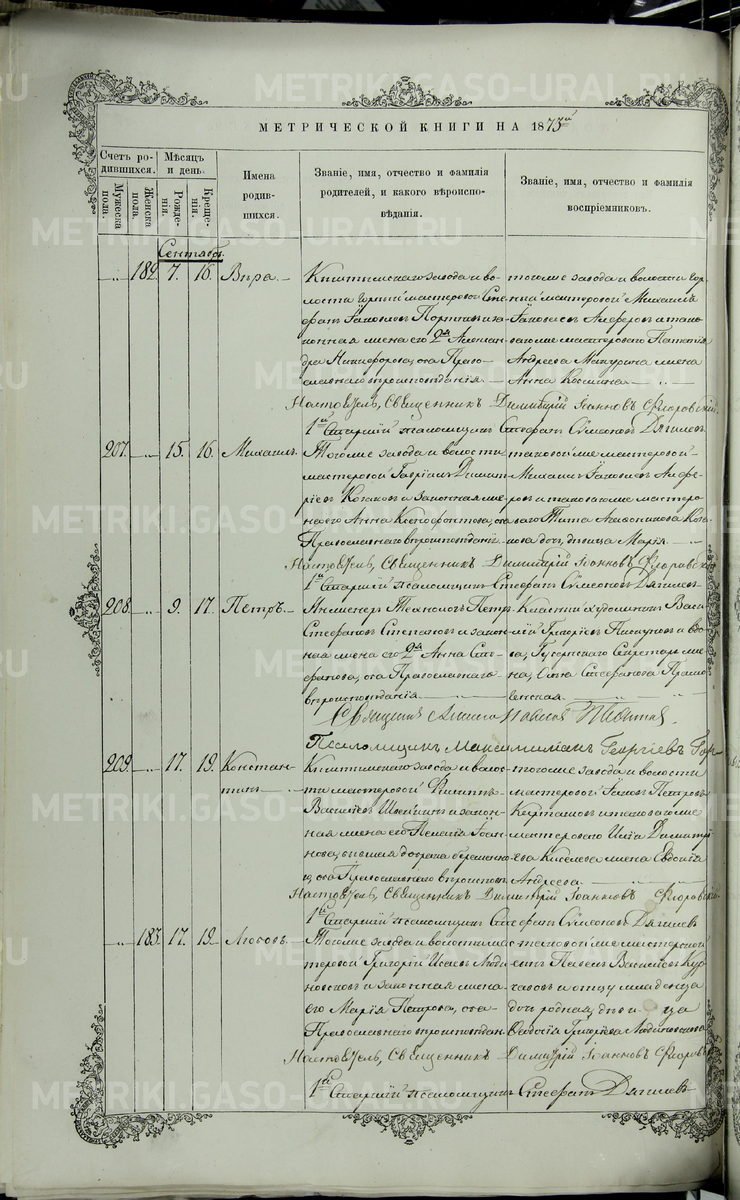 МЕТРИЧЕСКОЙ КНИГИ НА 1873й
Счетъ родившихся.
Мужеска пола.
Женска пола.
Мѣсяцъ и день.
Рожденія.
Крещенія.
Имена родившихся.
Званіе, имя, отчество и фамилія родителей, и какого вѣроисповѣданія.
Званіе, имя, отчество и фамилія воспріемниковъ.
Сентябрь
182. 7. 16. Вѣра.
Кыштымскаго завода и во-
лости горный мастеровой Сте-
фанъ Іаковлевъ
законная жена его 2й Алексан-
дра Никифорова, оба Право-
славнаго вѣроисповѣданія
тогоже завода и волости гор-
ный мастеровой Михаилъ
Іаковлевъ Алферовъ и тако-
ваго же мастероваго
Андреева жена
Анна Космина
Настоятель, Священникъ Димитрій Іоанновъ Флоровскій.
1й Старшій псаломщикъ Стефанъ Сѵмеоновъ Дягилевъ
207. 15. 16. Михаилъ.
Тогоже завода и волости
мастеровой Гавріилъ Димит-
ріевъ Козаковъ и законная же-
на его Анна Ксенофонтова, оба
Православнаго вѣроисповѣданія
таковой же мастеровой
Михаилъ Іаковлевъ Алфе-
ровъ и таковаго же мастеро-
ваго Тита Коза-
кова дочь, дѣвица Марія.
Настоятель, Священникъ Димитрій Іоанновъ Флоровскій
1й Старшій псаломщикъ Стефанъ Сѵмеоновъ Дягилевъ
208. 9. 17. Петръ.
Инженеръ Технологъ Петръ
Стефановъ Степановъ и закон-
ная жена его 2й Анна Сте-
фанова, оба Православнаго
вѣроисповѣданія
художникъ Васи-
лій Григоріевъ и вдо-
ва, Губернскаго Секретаря же-
на, Стефанова
Священникъ
Псаломщикъ Максимиліанъ Георгіевъ
209. 17. 19. Констан-
тинъ
Кыштымскаго завода и волос-
ти мастеровой Филиппъ
Василіевъ и закон-
ная жена его Пелагія Іоан-
нова,
оба Православнаго вѣроисповѣд.
тогоже завода и волости
мастеровой Іаковъ Петровъ
и таковаго же
мастероваго Иліи Димитрі-
ева Киселева жена Евдокія
Андреева.
Настоятель, Священникъ Димитрій Іоанновъ Флоровскій.
1й Старшій псаломщикъ Стефанъ Сѵмеоновъ Дягилевъ
183. 17. 19. Любовь.
Тогоже завода и волости мас-
теровой Григорій Исаевъ
и законная жена
его Марія Петрова, оба
Православнаго вѣроисповѣдан.
таковой же мастерской
сынъ Павелъ Василіевъ
и отцу младенца
дочь родная, дѣвица
Ѳеодосія Григоріева
Настоятель, Священникъ Димитрій Іоанновъ Флоровскій
1й Старшій псаломщикъ Стефанъ Дягилевъ
METRIKI.GASO-URAL.RU